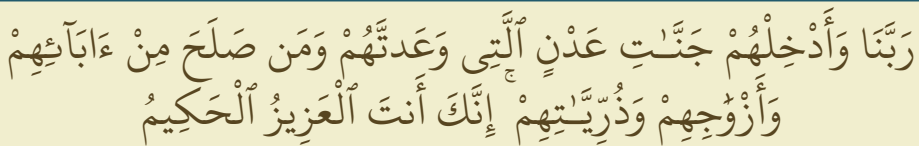 رَبَّنَا وَأَدْخِلْهُمْ جَنَّـٰتِ عَدْنٍ ٱلَّتِى وَعَدتَّهُمْ وَمَن صَلَحَ مِنْ ءَابَآئِهِمْ
وَأَزْوَٰجِهِمْ وَذُرِّيَّـٰتِهِمْ ۚ إِنَّكَ أَنتَ ٱلْعَزِيزُ ٱلْحَكِيمُ